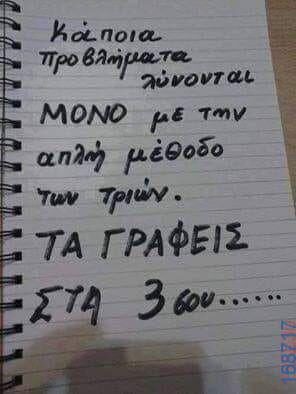 κάποια
προβλήματα
λύνονται
ΜΟΝΟ με την
απλή μέθοδο
των τριών.
ΤΑ ΓΡΑΦΕΙΣ
ΣΤΑ 3 σου......
168717